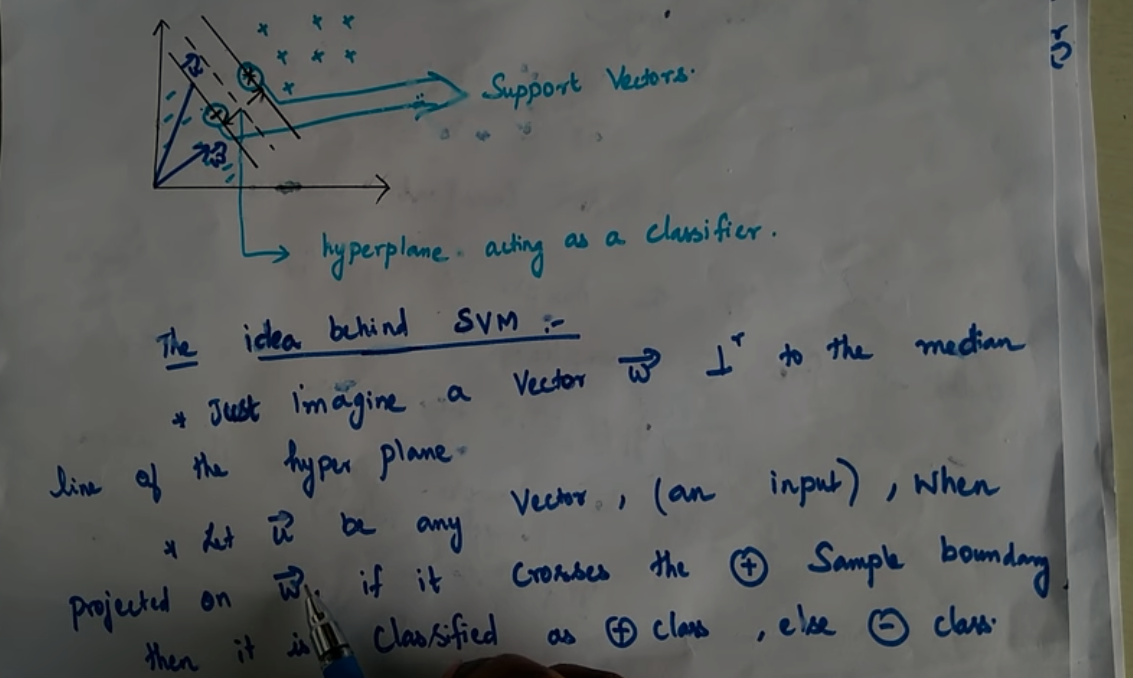 Support Vectors.
u⃗
w⃗
hyperplane acting as a classifier.
The idea behind SVM :-
* Just imagine a Vector w⃗ ⊥ʳ to the median
line of the hyper plane.
* Let u⃗ be any Vector, (an input), when
projected on w⃗. if it crosses the ⊕ Sample boundary,
then it is classified as ⊕ class, else ⊖ class.